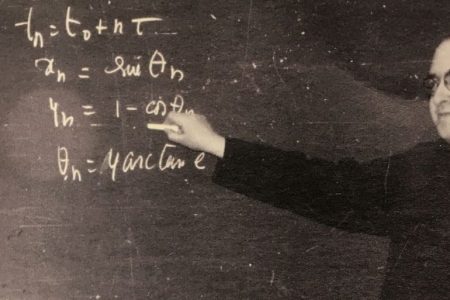 tn = to + n τ
xn = sin θn
yn = 1 - cos θn
θn = 4 arctan e